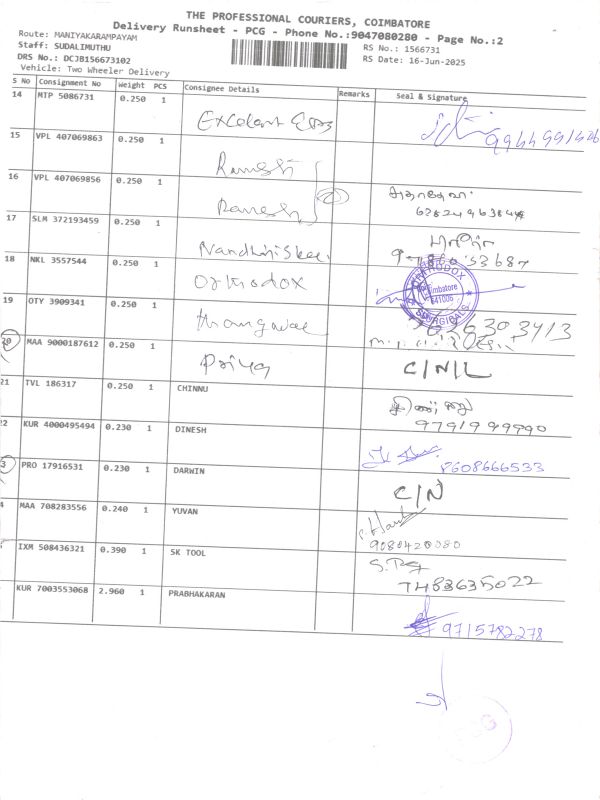 THE PROFESSIONAL COURIERS, COIMBATORE
Delivery Runsheet - PCG - Phone No.:9047080280 - Page No.:2
Route: MANIYAKARAMPAYAM
RS No.: 1566731
Staff: SUDALIMUTHU
RS Date: 16-Jun-2025
DRS No.: DCJB156673102
Vehicle: Two Wheeler Delivery
S No Consignment No Weight PCS Consignee Details Remarks Seal & Signature
14 MTP 5086731 0.250 1
15 VPL 407069863 0.250 1 Ramesh
16 VPL 407069856 0.250 1 Ramesh 2
17 SLM 372193459 0.250 1
18 NKL 3557544 0.250 1 Orthodox
ORTHODOX Coimbatore 641006 SURGICALS
19 OTY 3909341 0.250 1
20 MAA 9000187612 0.250 1 Priya C/N/L
21 TVL 186317 0.250 1 CHINNU
9791999990
22 KUR 4000495494 0.230 1 DINESH 8608666533
3 PRO 17916531 0.230 1 DARWIN C/N
4 MAA 708283556 0.240 1 YUVAN
9080420080
IXM 508436321 0.390 1 SK TOOL
7483635022
KUR 7003553068 2.960 1 PRABHAKARAN
9715782278